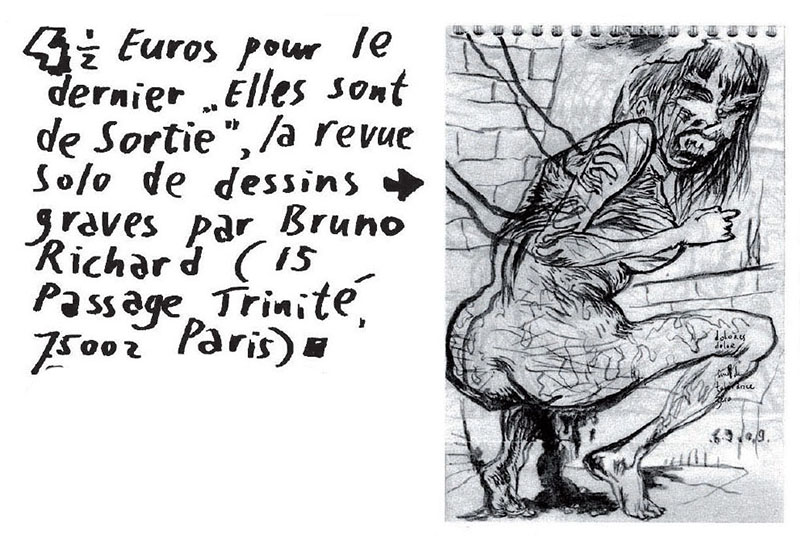 4 ½ Euros pour le
dernier „Elles sont
de Sortie", la revue
solo de dessins →
graves par Bruno
Richard (15
Passage Trinité,
75002 Paris) ■
dolores
dolor
tolerance
zero